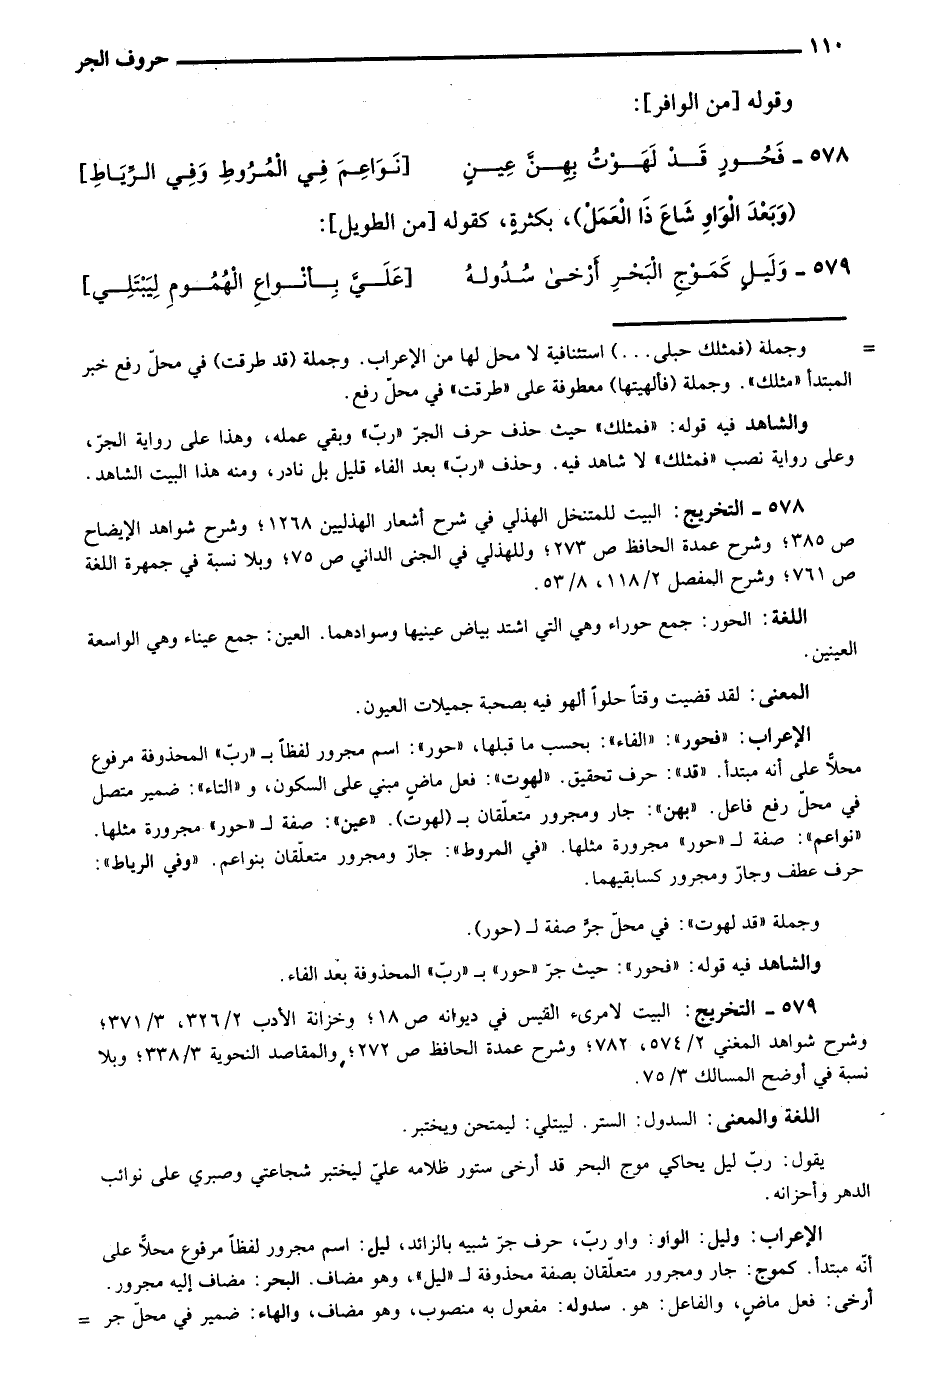 ١١٠ حروف الجر
وقوله [من الوافر]:
٥٧٨ ـ فَحُـورٍ قَـدْ لَهَـوْتُ بِهِـنَّ عِيـنٍ [نَـوَاعِـمَ فِـي الْمُـرُوطِ وَفِـي الـرِّيَـاطِ]
(وَبَعْدَ الْوَاوِ شَاعَ ذَا الْعَمَلْ)، بكثرةٍ، كقوله [من الطويل]:
٥٧٩ ـ وَلَيـلٍ كَمَـوْجِ الْبَحْـرِ أَرْخـىٰ سُـدُولـهُ [عَلَـيَّ بِـأنْـواعِ الْهُمُـومِ لِيَبْتَلِـي]
= وجملة (فمثلك حبلى...) استئنافية لا محل لها من الإعراب. وجملة (قد طرقت) في محلّ رفع خبر
المبتدأ «مثلك». وجملة (فألهيتها) معطوفة على «طرقت» في محلّ رفع.
والشاهد فيه قوله: «فمثلك» حيث حذف حرف الجرّ «ربّ» وبقي عمله، وهذا على رواية الجرّ،
وعلى رواية نصب «فمثلك» لا شاهد فيه. وحذف «ربّ» بعد الفاء قليل بل نادر، ومنه هذا البيت الشاهد.
٥٧٨ ـ التخريج: البيت للمتنخل الهذلي في شرح أشعار الهذليين ١٢٦٨؛ وشرح شواهد الإيضاح
ص ٣٨٥؛ وشرح عمدة الحافظ ص ٢٧٣؛ وللهذلي في الجنى الداني ص ٧٥؛ وبلا نسبة في جمهرة اللغة
ص ٧٦١؛ وشرح المفصل ٢/ ١١٨، ٨/ ٥٣.
اللغة: الحور: جمع حوراء وهي التي اشتد بياض عينيها وسوادهما. العين: جمع عيناء وهي الواسعة
العينين.
المعنى: لقد قضيت وقتاً حلواً ألهو فيه بصحبة جميلات العيون.
الإعراب: «فحور»: «الفاء»: بحسب ما قبلها، «حور»: اسم مجرور لفظاً بـ «ربّ» المحذوفة مرفوع
محلاً على أنه مبتدأ. «قد»: حرف تحقيق. «لهوت»: فعل ماضٍ مبني على السكون، و «التاء»: ضمير متصل
في محلّ رفع فاعل. «بهن»: جار ومجرور متعلّقان بـ (لهوت). «عين»: صفة لـ «حور» مجرورة مثلها.
«نواعم»: صفة لـ «حور» مجرورة مثلها. «في المروط»: جارّ ومجرور متعلّقان بنواعم. «وفي الرياط»:
حرف عطف وجارّ ومجرور كسابقيهما.
وجملة «قد لهوت»: في محلّ جرّ صفة لـ (حور).
والشاهد فيه قوله: «فحور»: حيث جرّ «حور» بـ «ربّ» المحذوفة بعد الفاء.
٥٧٩ ـ التخريج: البيت لامرىء القيس في ديوانه ص ١٨؛ وخزانة الأدب ٢/ ٣٢٦، ٣/ ٣٧١؛
وشرح شواهد المغني ٢/ ٥٧٤، ٧٨٢؛ وشرح عمدة الحافظ ص ٢٧٢؛ والمقاصد النحوية ٣/ ٣٣٨؛ وبلا
نسبة في أوضح المسالك ٣/ ٧٥.
اللغة والمعنى: السدول: الستر. ليبتلي: ليمتحن ويختبر.
يقول: ربّ ليل يحاكي موج البحر قد أرخى ستور ظلامه عليّ ليختبر شجاعتي وصبري على نوائب
الدهر وأحزانه.
الإعراب: وليل: الواو: واو ربّ، حرف جرّ شبيه بالزائد، ليل: اسم مجرور لفظاً مرفوع محلاً على
أنّه مبتدأ. كموج: جار ومجرور متعلّقان بصفة محذوفة لـ «ليل»، وهو مضاف. البحر: مضاف إليه مجرور.
أرخى: فعل ماضٍ، والفاعل: هو. سدوله: مفعول به منصوب، وهو مضاف، والهاء: ضمير في محلّ جر =